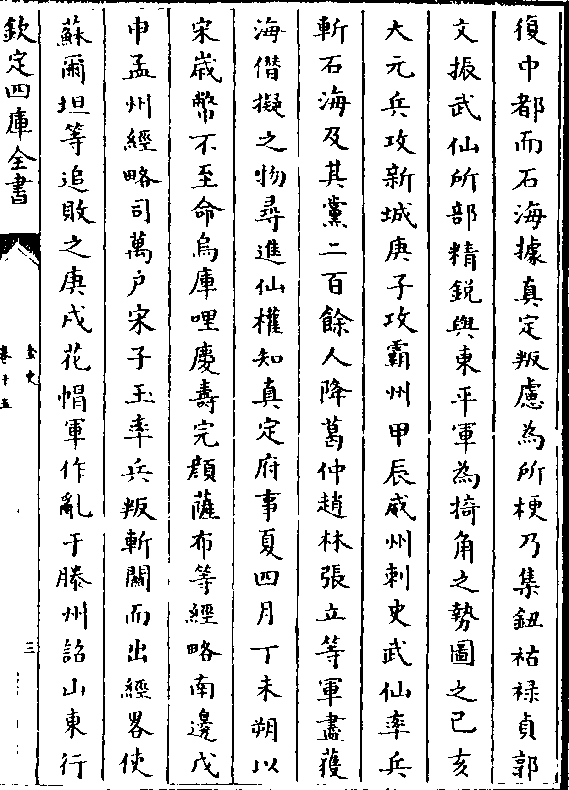 復中都而石海據真定叛慮為所梗乃集鈕祜禄貞郭
文振武仙所部精鋭與東平軍為掎角之勢圖之己亥
大元兵攻新城庚子攻霸州甲辰威州刺史武仙率兵
斬石海及其黨二百餘人降葛仲趙林張立等軍盡獲
海僭擬之物尋進仙權知真定府事夏四月丁未朔以
宋歳幣不至命烏庫哩慶壽完顔薩布等經略南邊戊
申孟州經略司萬戶宋子玉率兵叛斬關而出經畧使
蘇爾坦等追敗之庚戌花帽軍作亂于滕州詔山東行
欽定四庫全書
金史
卷十五
三